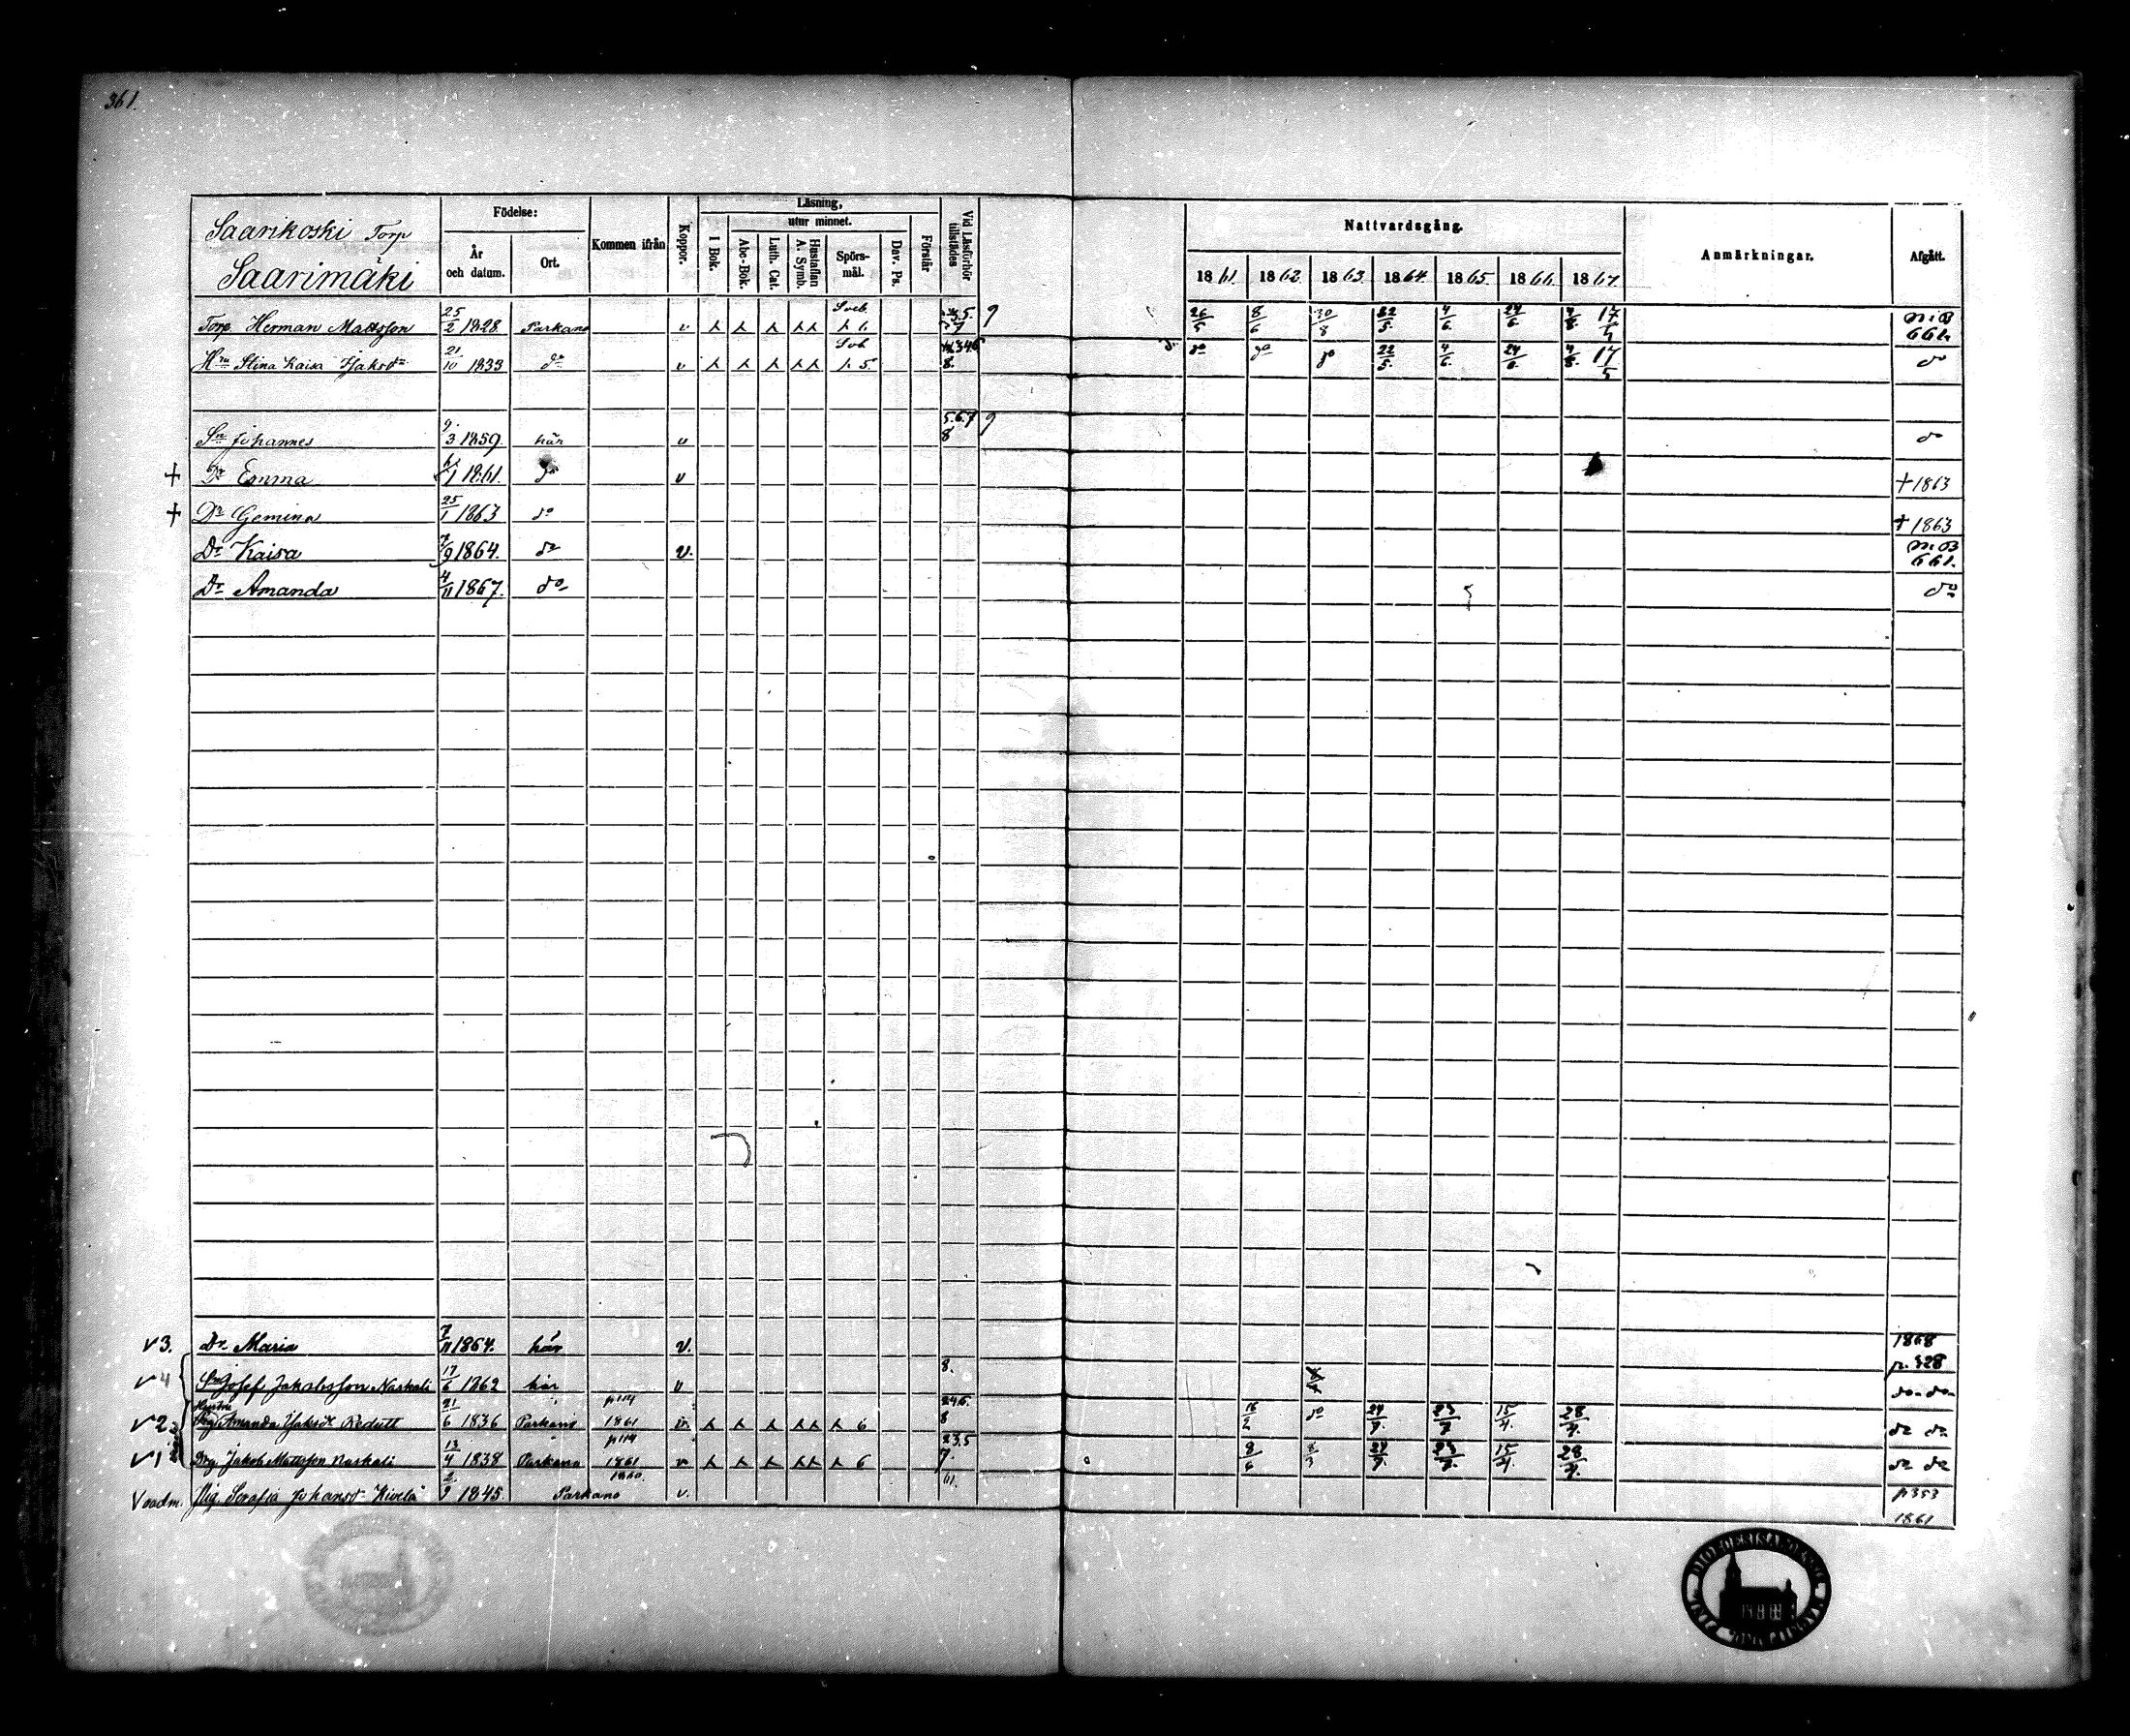 361.
Saarikoski Torp
Saarimäki
Födelse:
År och datum.
Ort.
Kommen ifrån
Koppor.
Läsning,
utur minnet.
I Bok.
Abc-Bok.
Luth. Cat.
Hustaflan A. Symb.
Spörs-mål.
Dav. Ps.
Förstår
Vid Läsförhör tillstädes
Nattvardsgång.
1861. 1862. 1863. 1864. 1865. 1866. 1867.
Anmärkningar.
Afgått.
Torp. Herman Mattsson 25/2 1828 Parkano v 26/5 8/6 30/8 22/5. 4/6. 24/6. 4/8. 17/5
Hru Stina Kaisa Jaksdr 21/10 1833 do v 8. do do do 22/5. 4/6. 24/6. 4/8. 17/5 do
Sn Johannes 9/3 1859 här v 5.6.7 8 9 do
+ Dr Emma 1861. do v + 1863
+ Dr Gemina 25/1 1863 do + 1863
Dr Kaisa 7/9 1864. do v. 661.
Dr Amanda 4/11 1867. do do
v 3. Dr Maria 7/11 1864. här v. 1868 p. 328
v 4 Sn Josef Jakobsson Naskali 17/6 1862 här v 8. do do
v 2 Hustru Amanda Jaksdr Redutt 21/6 1836 Parkano 1861 v 6 246. 8 16/2 do 24/7. 23/7. 15/4. 28/4. do do
v 1 Drg. Jakob Mattsson Naskali 13/4 1838 Parkano 1861 v 6 235 7. 8/6 24/7. 23/7. 15/4. 28/4. do do
v oadm. Pig. Serafia Johansdr Kivelä 2/9 1845. 1860. Parkano v. 61. p 353
1861